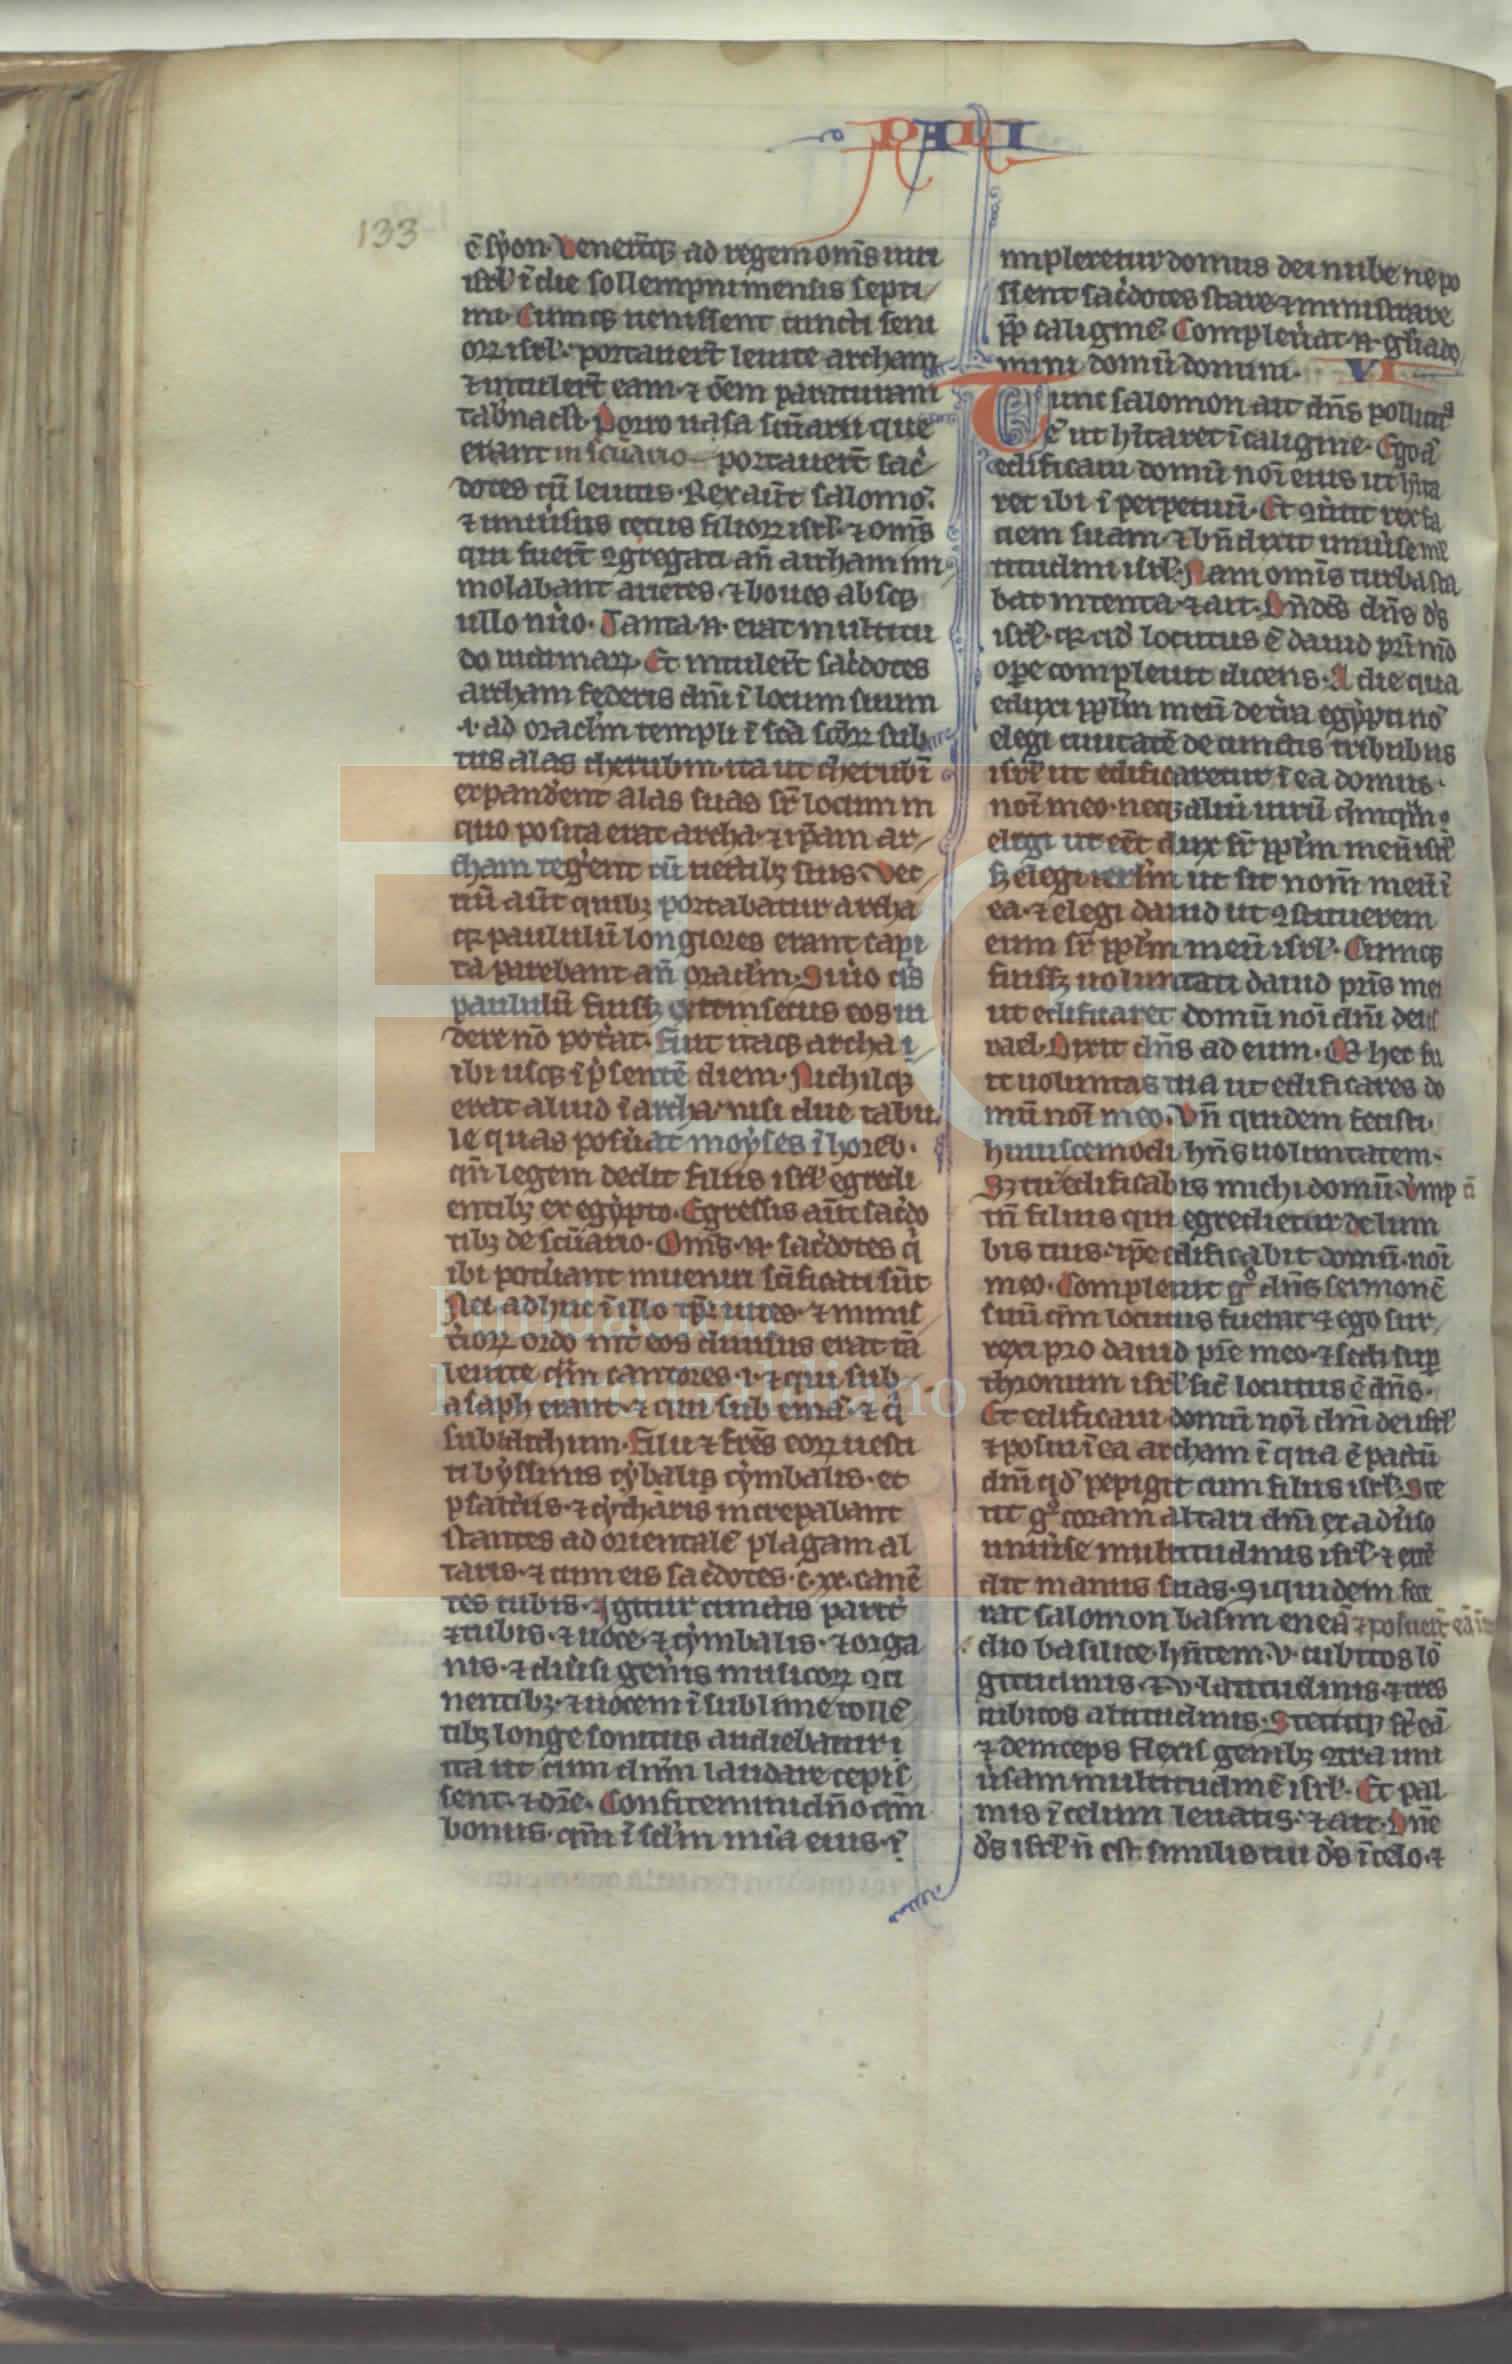 PALI
133
ē syon. Veneruntq; ad regem om̄s uiri
isrl' ī die sollempni mensis septi
mi. Cumq; uenissent cuncti seni
oꝝ isrl'. portauer̄t leuite archam
⁊ intuler̄t eam. ⁊ ōem paraturam
tab̾nacli. Porro uasa sc̄uarii que
erant in sc̄uario portauer̄t sac̾
dotes cū leuitis. Rex aūt salomō.
⁊ uniu̾sus cetus filioꝝ isrl'. ⁊ om̄s
qui fuer̄t ꝯgregati an̄ archam im
molabant arietes. ⁊ boues absq;
ullo nu̾o. Tanta .n. erat multitu
do uictimaꝝ. Et intuler̄t sac̾dotes
archam federis dn̄i ī locum suum
.i. ad oraclm̄ templi ī sc̄a sc̄oꝝ sub
tus alas cherubin. ita ut cherubī
expand̾ent alas suas sr̄ locum in
quo posita erat archa. ⁊ ip̄am ar
cham teg̾ent cū uectib; suis. Vec
tiū aūt quib; portabatur archa
qꝛ paululū longiores erant capi
ta parebant an̄ oraclm̄. Si u̾o q̾s
paululū fuiss; extrinsecus eos ui
dere nō pot̾at. Fuit itaq; archa i
ibi usq; ī p̾sentē diem. Nichilq;
erat aliud ī archa. nisi due tabu
le quas posu̾at moyses ī horeb.
qn̄ legem dedit filiis isrl' egredi
entib; ex egypto. Egressis aūt sac̾do
tib; de sc̄uario. Om̄s .n. sac̾dotes q̾
ibi pot̾ant inueniri sc̄ificati sūt
Nec adhuc ī illo tp̄r uices. ⁊ minis
t̾ioꝝ ordo int̾ eos diuisus erat tā
leuite qm̄ cantores .i. ⁊ qui sub
asaph erant. ⁊ qui sub eman. ⁊ q̾
sub idithum. Filii ⁊ fr̄es eoꝝ uesti
ti byssinis cybalis cymbalis. et
psalt̾iis. ⁊ cycharis increpabant
stantes ad orientalē plagam al
taris. ⁊ cum eis sac̾dotes .c.xx. canē
tes tubis. Igitur cunctis parit̾
⁊ tubis. ⁊ uoce. ⁊ cymbalis. ⁊ orga
nis. ⁊ diu̾si gen̾is musicoꝝ ꝯci
nentib;. ⁊ uocem ī sublime tollē
tib; longe sonitus audiebatur i
ita ut cum dnm̄ laudare cepis
sent. ⁊ dic̄e. Confitemini dn̄o qm̄
bonus. qm̄ ī sclm̄ mīa eius. ī
mpleretur domus dei nube ne po
ssent sac̾dotes stare ⁊ ministrare
ꝓp caliginē. Compleu̾at .n. gl̄ia do
mini domū domini. VI
Tunc salomon ait dn̄s pollicit̾
ē ut hītaret ī caligine. Ego ā
edificaui domū noī eius ut hīta
ret ibi ī perpetuū. Et ꝯu̾tit rex fa
ciem suam. ⁊ bn̄dixit uniu̾se ml̄
titudini isrl'. Nam om̄is turba sta
bat intenta. ⁊ ait. Bn̄dc̄s dn̄s d̾s
isrl'. qꝛ qd̾ locutus ē dauid pr̄i m̄o
ope compleuit dicens. A die qua
eduxi pplm̄ meū de t̾ra egypti nō
elegi ciuitatē de cunctis tribubus
isrl' ut edificaretur ī ea domus.
noī meo. neq; aliū uirū qmq̾m
elegi ut eēt dux sr̄ pplm̄ meū isrl'
s; elegi ierlm̄ ut sit nom̄ meū ī
ea. ⁊ elegi dauid ut ꝯstituerem
eum sr̄ pplm̄ meū isrl'. Cumq;
fuiss; uoluntati dauid pr̄is mei
ut edificaret domū noī dn̄i dei is
rael. Dixit dn̄s ad eum. Qꝛ hec fu
it uoluntas tua ut edificares do
mū noī meo. Bn̄ quidem fecisti.
huiuscemodi hn̄s uoluntatem.
S; tu edificabis michi domū.
tn̄ filius qui egredietur de lum
bis tuis. ip̄e edificabit domū noī
meo. Compleuit gͦ dn̄s sermonē
suū qm̄ locutus fuerat. ⁊ ego sur
rexi pro dauid pr̄e meo. ⁊ sedi sup
thronum isrl' sic̄ locutus ē dn̄s.
Et edificaui domū noī dn̄i dei isrl'
⁊ posui ī ea archam ī qua ē pactū
dn̄i qd̾ pepigit cum filiis isrl'. Ste
tit gͦ coram altari dn̄i ex adu̾so
uniu̾se multitudinis isrl'. ⁊ extē
dit manus suas. Siquidem fec
rat salomon basim eneā ⁊ posuer̄t eā ī me
dio basilice hn̄tem .v. cubitos lō
gitudinis. ⁊ .v. latitudinis. ⁊ tres
cubitos altitudinis. Stetitq; sr̄ eā
⁊ deinceps flexis genib; ꝯtra uni
u̾sam multitudinē isrl'. Et pal
mis ī celum leuatis. ⁊ ait. Dn̄e
d̾s isrl' n̄ est similis tui d̾s ī celo. ⁊
FLG
Fundación
Lázaro Galdiano